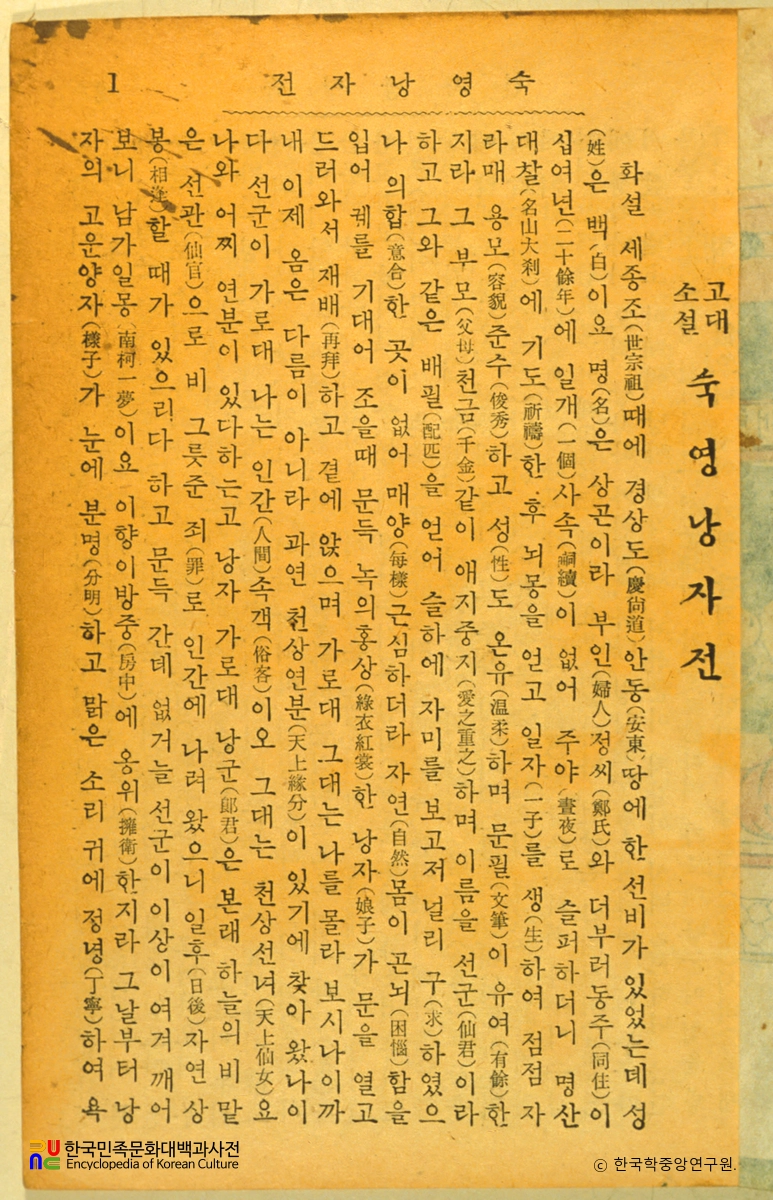 숙영낭자전 1
고대소설 숙영낭자전
화설 세종조(世宗祖)때에 경상도(慶尙道)안동(安東)땅에 한 선비가 있었는데 성
(姓)은 백(白)이요 명(名)은 상곤이라 부인(婦人)정씨(鄭氏)와 더부러동주(同住)이
십여년(二十餘年)에 일개(一個)사속(嗣續)이 없어 주야(晝夜)로 슬퍼하더니 명산
대찰(名山大刹)에 기도(祈禱)한 후 뇌몽을 얻고 일자(一子)를 생(生)하여 점점 자
라매 용모(容貌)준수(俊秀)하고 성(性)도 온유(温柔)하며 문필(文筆)이 유여(有餘)한
지라 그 부모(父母)천금(千金)같이 애지중지(愛之重之)하며 이름을 선군(仙君)이라
하고 그와 같은 배필(配匹)을 얻어 슬하에 자미를 보고저 널리 구(求)하였으
나 의합(意合)한 곳이 없어 매양(每樣)근심하더라 자연(自然)몸이 곤뇌(困惱)함을
입어 궤를 기대어 조을때 문득 녹의홍상(綠衣紅裳)한 낭자(娘子)가 문을 열고
드러와서 재배(再拜)하고 곁에 앉으며 가로대 그대는 나를 몰라 보시나이까
내 이제 옴은 다름이 아니라 과연 천상연분(天上緣分)이 있기에 찾아 왔나이
다 선군이 가로대 나는 인간(人間)속객(俗客)이오 그대는 천상선녀(天上仙女)요
나와 어찌 연분이 있다하는고 낭자 가로대 낭군(郞君)은 본래 하늘의 비맡
은 선관(仙官)으로 비 그릇준 죄(罪)로 인간에 나려 왔으니 일후(日後)자연 상
봉(相逢)할 때가 있으리다 하고 문득 간데 없거늘 선군이 이상이 여겨 깨어
보니 남가일몽(南柯一夢)이요 이향이방중(房中)에 옹위(擁衛)한지라 그날부터 낭
자의 고운양자(樣子)가 눈에 분명(分明)하고 맑은 소리 귀에 정녕(丁寧)하여 욕
한국민족문화대백과사전
Encyclopedia of Korean Culture
© 한국학중앙연구원.